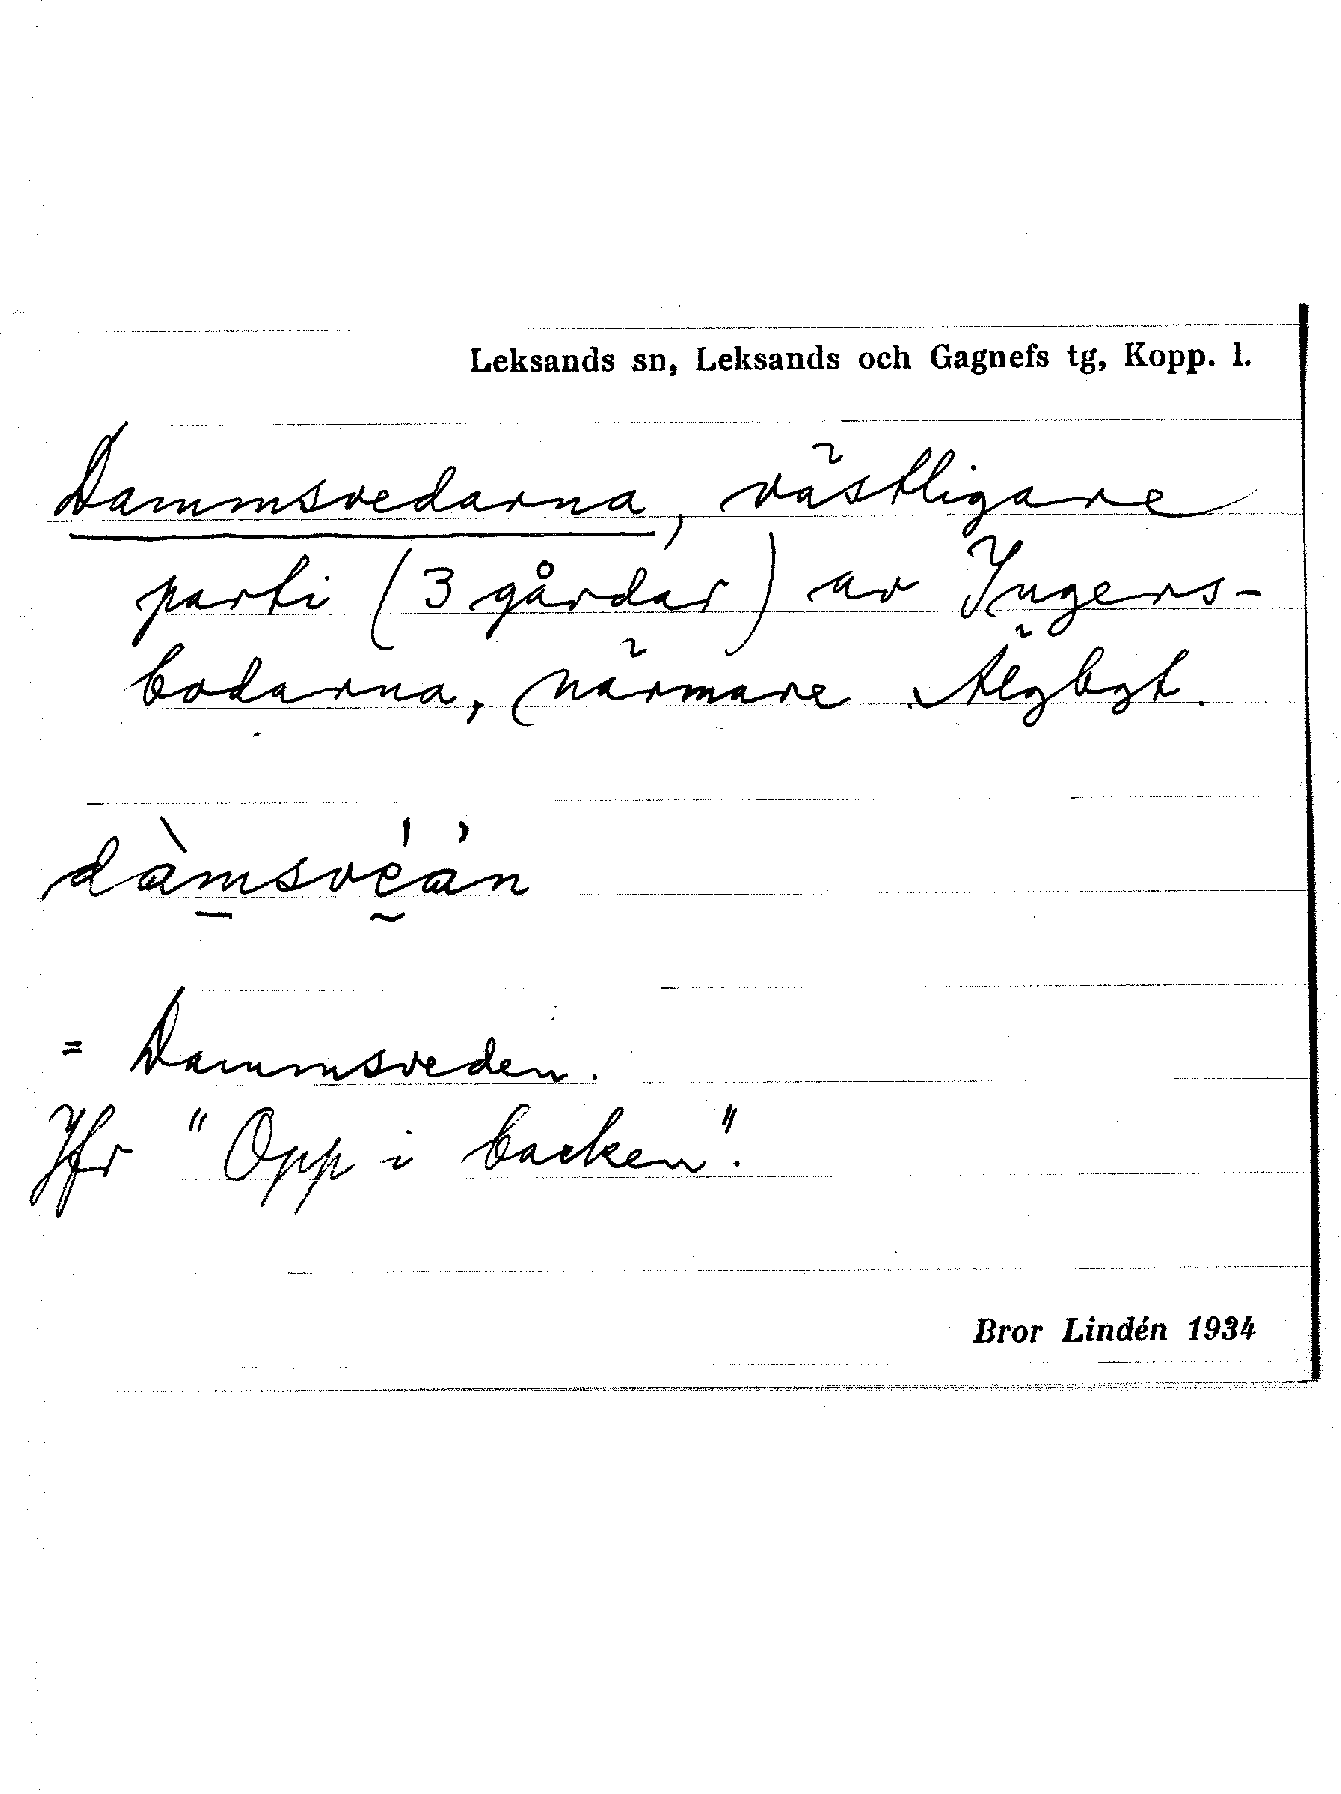 Leksands sn, Leksands och Gagnefs tg, Kopp. l.
Dammsvedarna, västligare
parti (3 gårdar) av Ingers-
bodarna, närmare Älgbgt.
dàmsvéán
= Dammsveden.
Jfr "Opp i backen".
Bror Lindén 1934